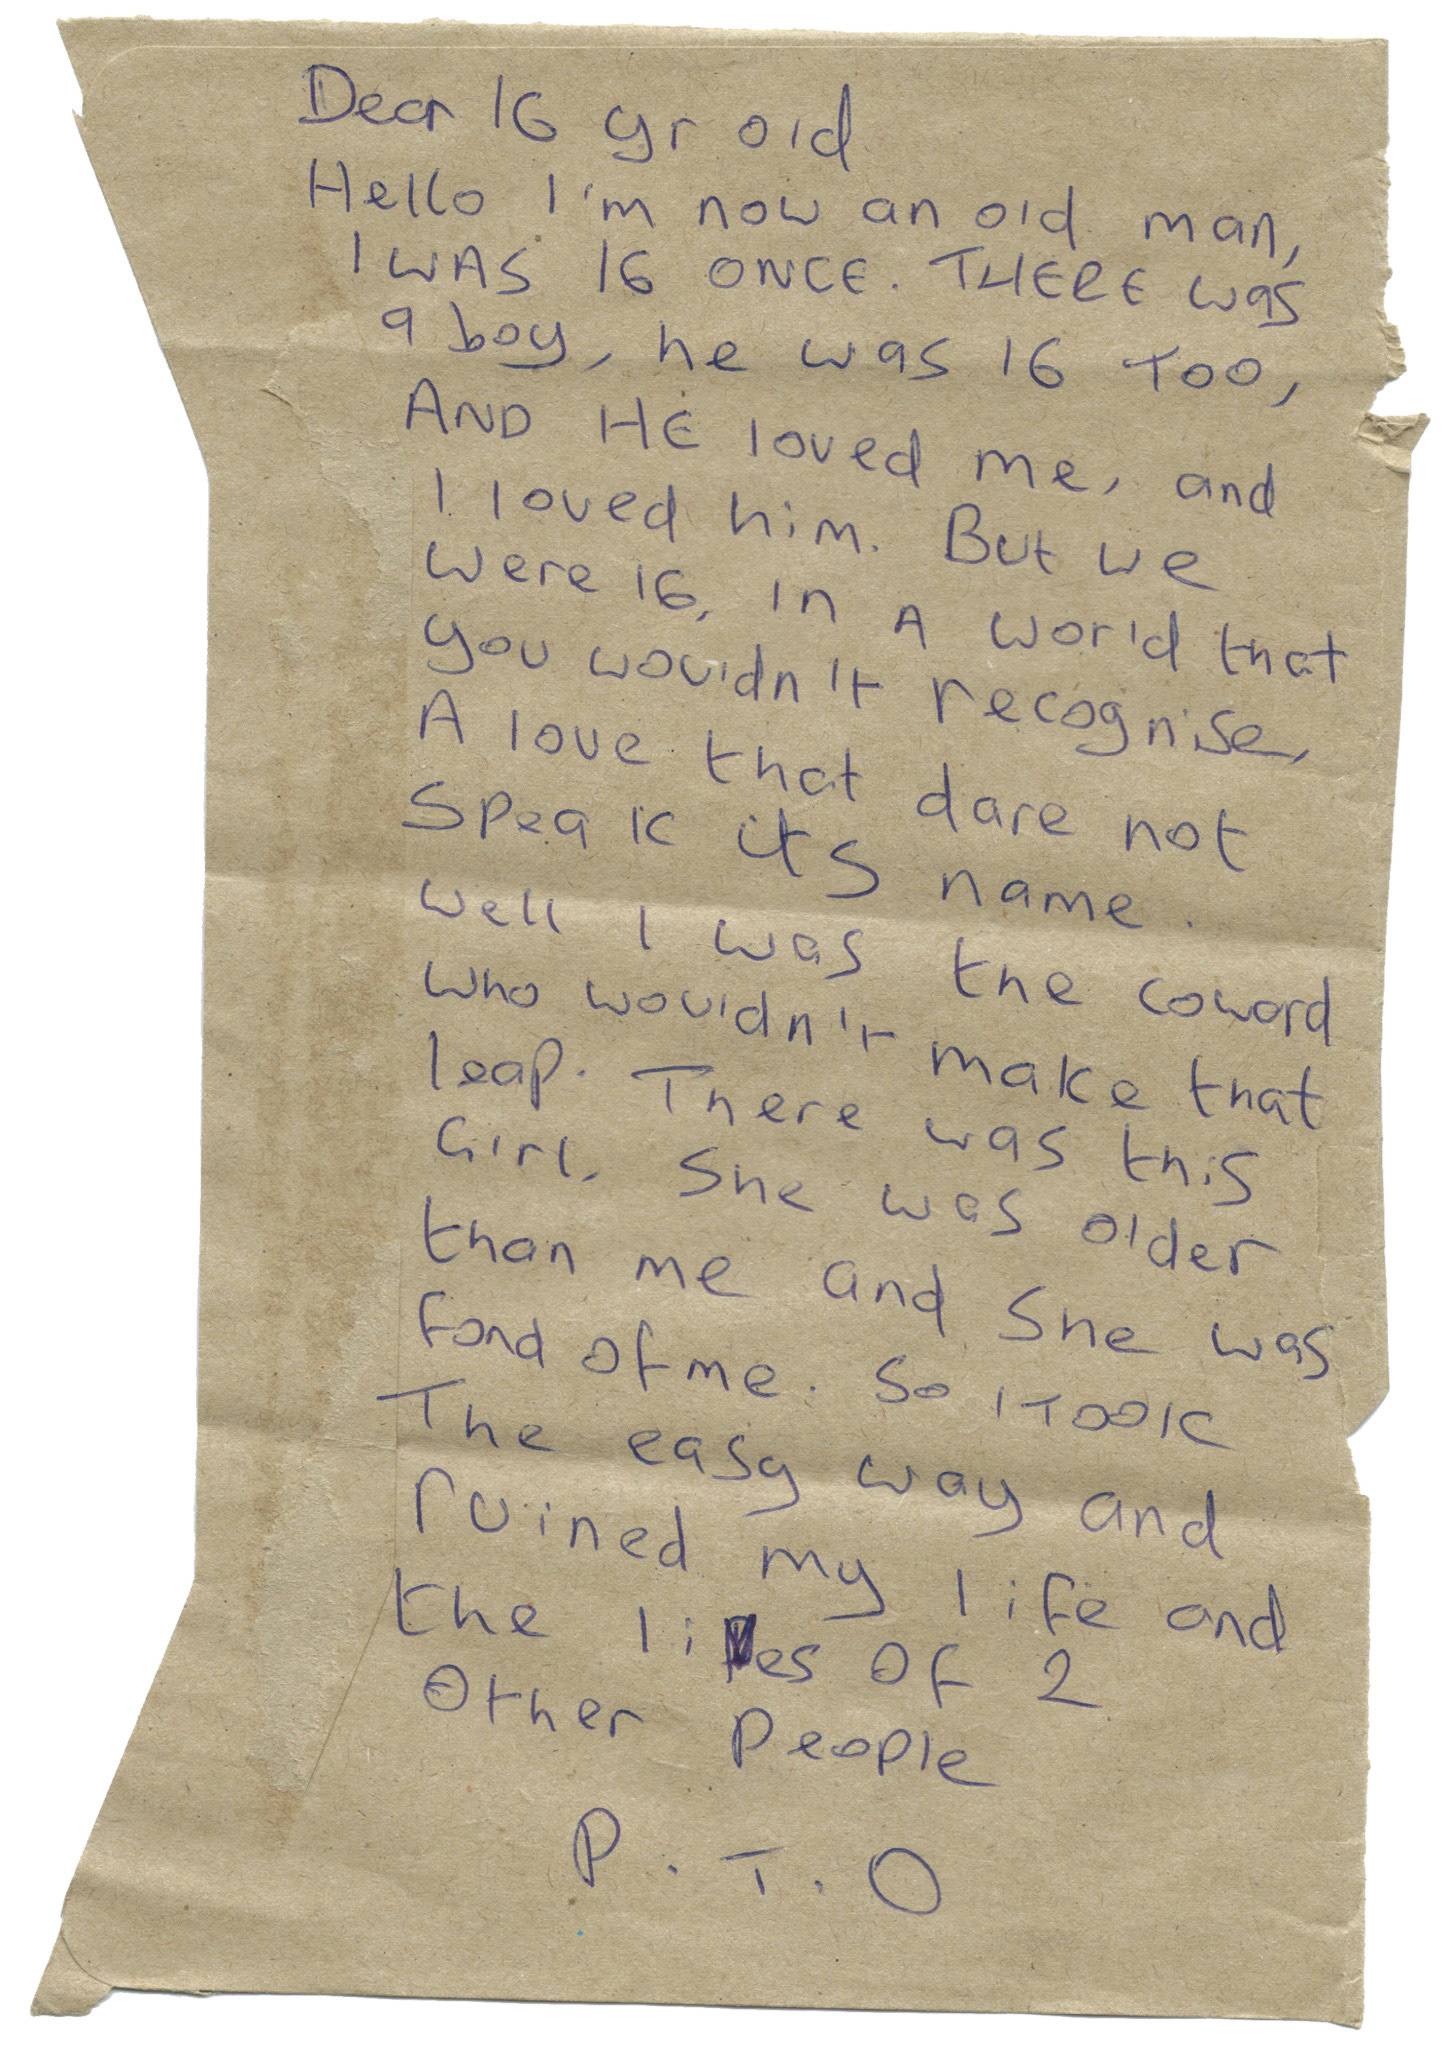 Dear 16 yr old
Hello I'm now an old man,
I WAS 16 ONCE. THERE was
a boy, he was 16 TOO,
AND HE loved me, and
I loved him. But we
were 16, in A world that
you wouldn't recognise,
A love that dare not
speak its name.
Well I was the coward
who wouldn't make that
leap. There was this
Girl, She was older
than me and She was
fond of me. So I TOOK
The easy way and
ruined my life and
the lives of 2
Other People
P.T.O